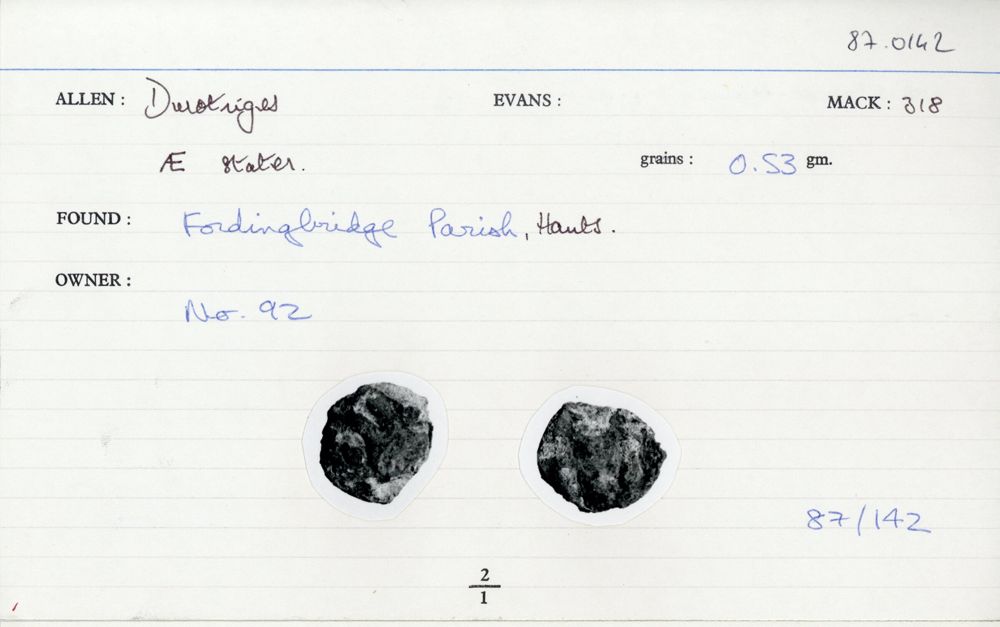 87.0142
ALLEN : Durotriges EVANS : MACK : 318
Æ stater. grains : 0.53 gm.
FOUND : Fordingbridge Parish, Hants.
OWNER :
No. 92
87/142
2
1